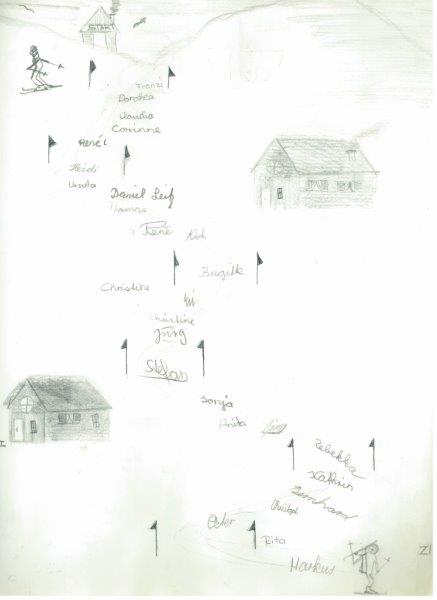 Franzi
Dorothea
Claudia
Corinne
René
Heidi
Ursula
Daniel Leif
Thomas
René
Brigitte
Christine
Christine
Jürg
Stefan
Sonja
Anita
Rebekka
Kathrin
Bernhard
Christoph
Peter
Rita
Markus